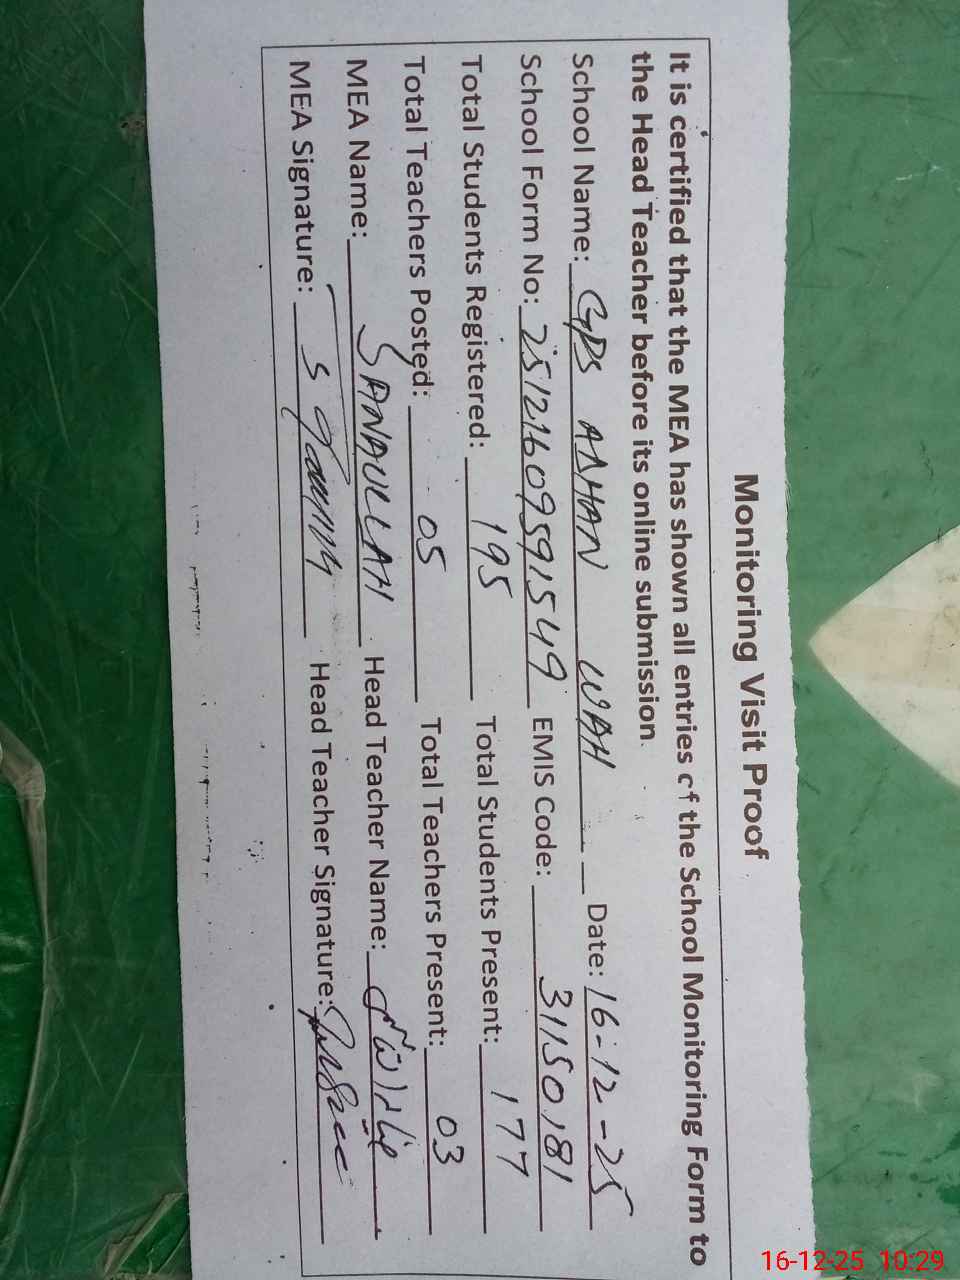 Monitoring Visit Proof
It is certified that the MEA has shown all entries of the School Monitoring Form to
the Head Teacher before its online submission.
School Name: GPS ANHAN WAH Date: 16-12-25
School Form No: 251216095591549 EMIS Code: 31150181
Total Students Registered: 195 Total Students Present: 177
Total Teachers Posted: 05 Total Teachers Present: 03
MEA Name: SANAULLAH Head Teacher Name:
MEA Signature: Head Teacher Signature:
16-12-25 10:29